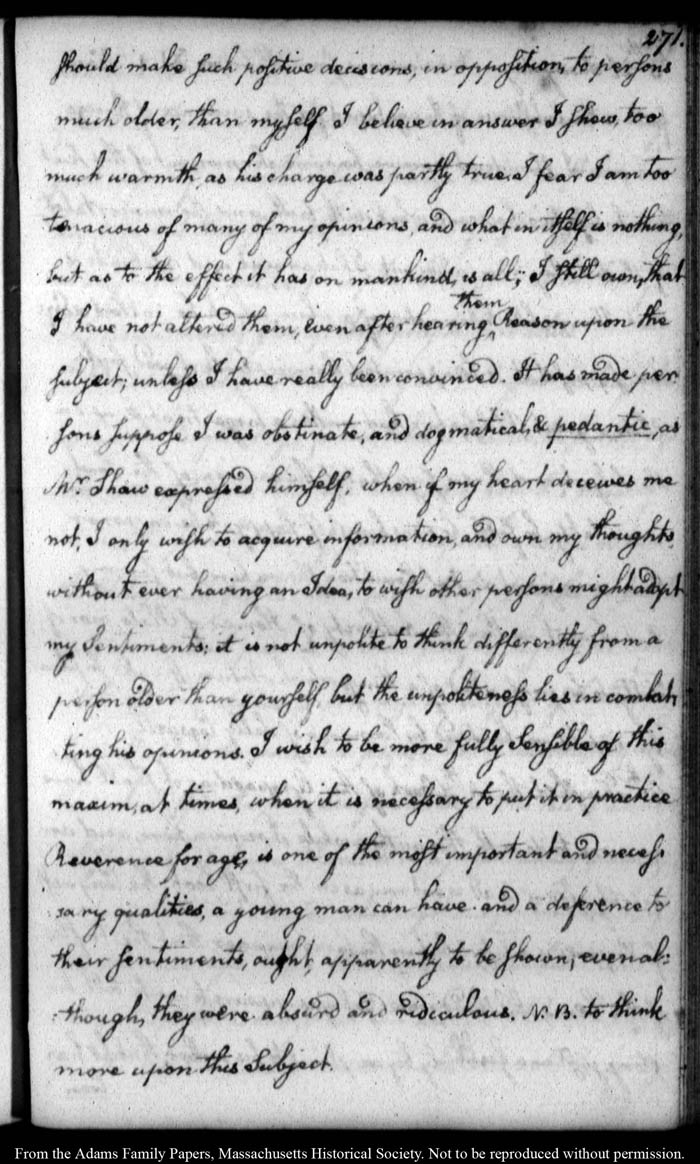 271.
should make such positive decisions, in opposition, to persons
much older, than myself I believe in answer I shew, too
much warmth, as his charge was partly true. I fear I am too
tenacious of many of my opinions, and what in itself is nothing,
but as to the effect it has on mankind, is all; I still own, that
I have not altered them, even after hearing them Reason upon the
subject; unless I have really been convinced. It has made per-
sons suppose I was obstinate, and dogmatical, & pedantic, as
Mr. Shaw expressed himself, when if my heart deceives me
not, I only wish to acquire information, and own my thoughts
without ever having an Idea, to wish other persons might adopt
my Sentiments: it is not unpolite to think differently from a
person older than yourself, but the unpoliteness lies in combat,
ting his opinions. I wish to be more fully Sensible of this
maxim, at times, when it is necessary to put it in practice
Reverence for age, is one of the most important and neces
sary qualities, a young man can have. and a deference to
their sentiments, ought, apparently to be shown, even al:
:though, they were absurd and ridiculous. N. B. to think
more upon this Subject.
From the Adams Family Papers, Massachusetts Historical Society. Not to be reproduced without permission.